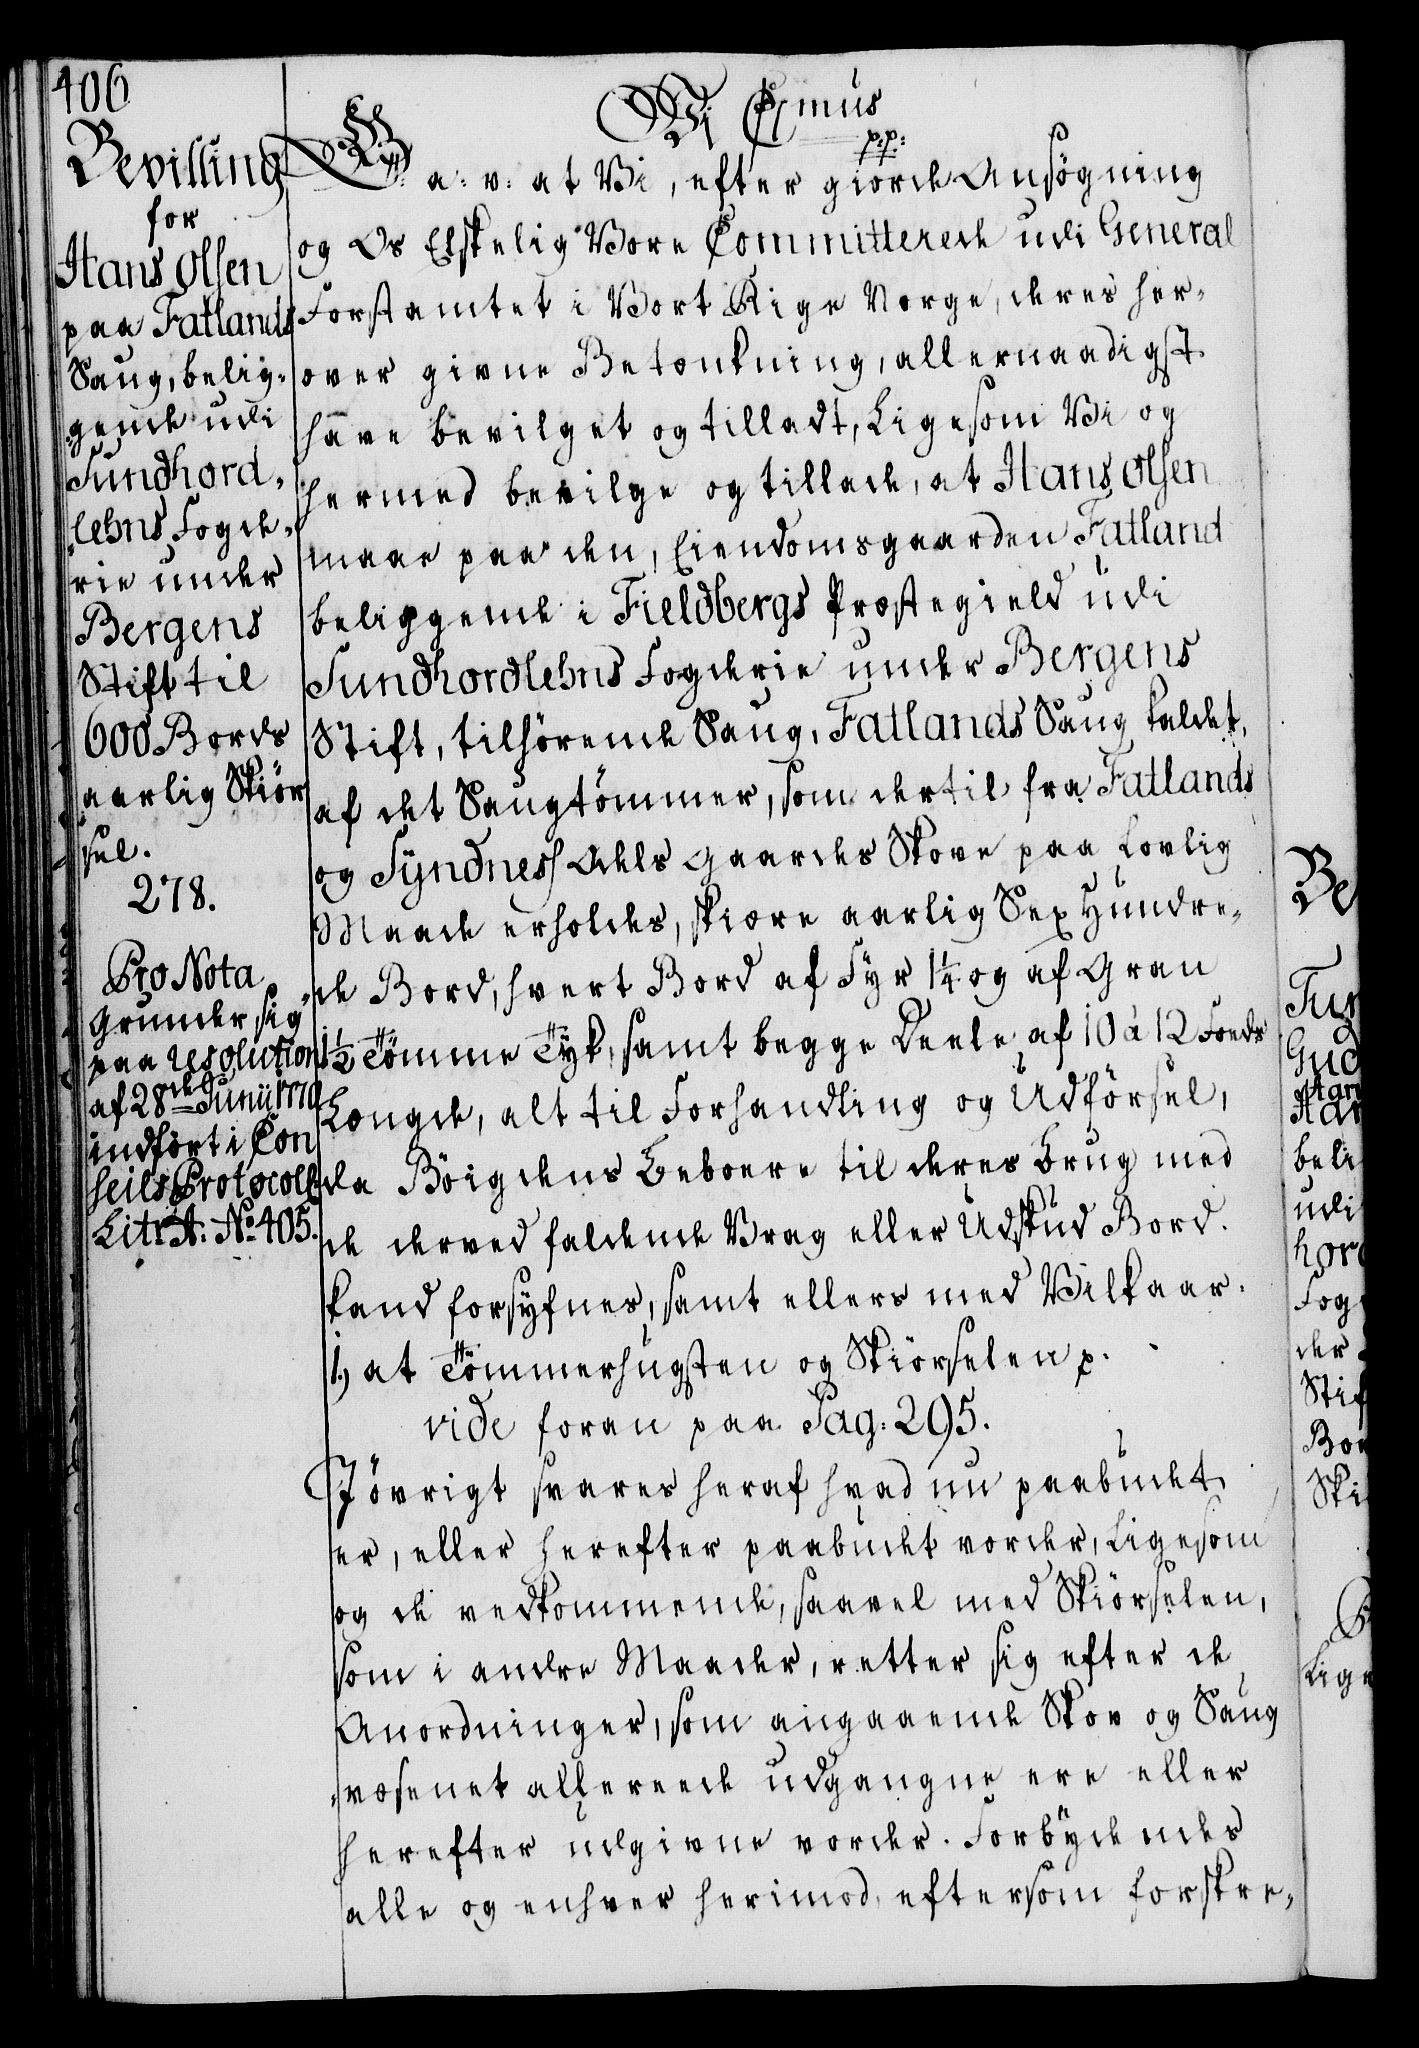 406
Bevilling
for
Hans Olsen
paa Fatlands
Saug, belig-
gende udi
Sundhord-
lehns Fogde-
rie under
Bergens
Stift til
600 Bords
aarlig Skiör
sel.
278.
Pro Nota
Grunder sig
paa resolution
af 28de Junii 1770
indfört i Con
seils Protocoll
Litr: A: No 405.
Vi C 7mus
p.p:
G: a: v: at Vi, efter giorde Ansögning
og Os Elskelig Vore Committerede udi General
Forstamtet i Vort Rige Norge, deres her-
over givne Betænkning, allernaadigst
have bevilget og tilladt, Ligesom Vi og
hermed bevilge og tillade, at Hans Olsen
maae paa den, Eiendomsgaarden Fatland
beliggende i Fieldbergs Præstegield udi
Sundhordlehns Fogderie under Bergens
Stift, tilhörende Saug, Fatlands Saug kaldet,
af det Saugtömmer, som dertil fra Fatlands
og Syndness Aels Gaardes Skove paa Lovlig
Maade erholdes, skiære aarlig Sex Hundre-
de Bord, hvert Bord af Fyr 1¼ og af Gran
1½ Tömme Tyk, samt begge Deele af 10 à 12 Foeds
Længde, alt til Forhandling og Udförsel,
da Böigdens Beboere til deres Brug med
de derved faldende Vrag eller Udskud Bord
kand forsÿfnes, samt ellers med Vilkaar.
1.) at Tömmerhugsten og Skiörselen p.
vide foran paa Pag: 295.
Iövrigt svares heraf hvad nu paabudet
er, eller herefter paabudet vorder, Ligesom
og de vedkommende, saavel med Skiörselen,
som i andre Maader, retter sig efter de
Anordninger, som angaaende Skov og Saug
væsenet allereede udgangne ere eller
herefter udgivne vorder. Forbydendes
alle og enhver herimod, eftersom forskre-
Be
beli
udi
hord
Fog
der
Stif
Bor
Ski
Lige